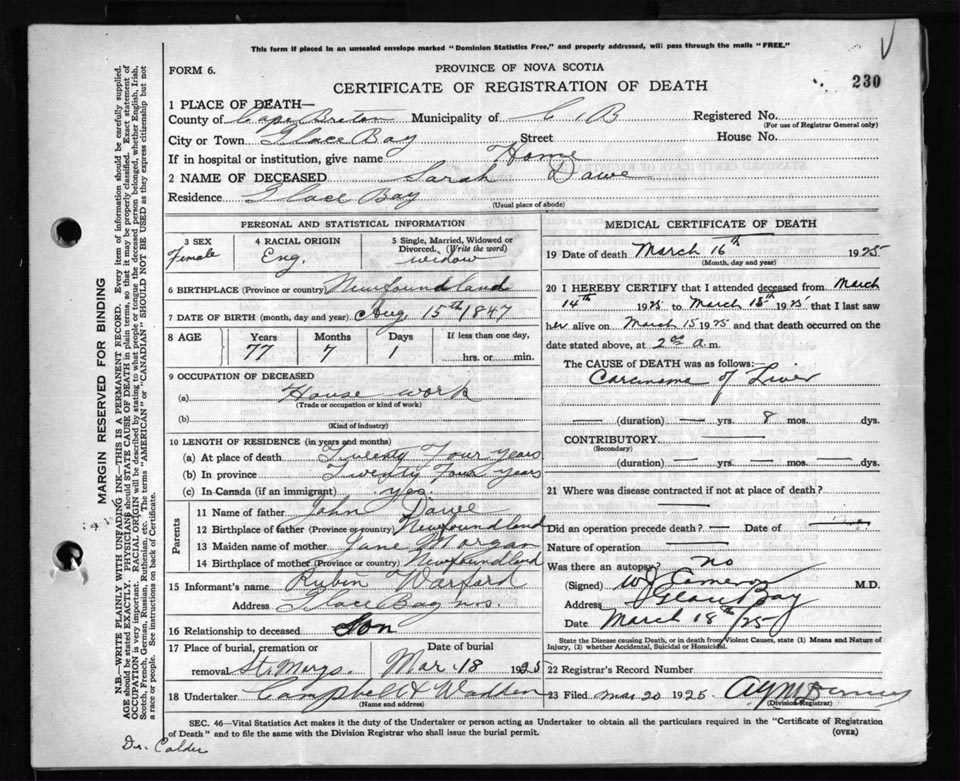 This form if placed in an unsealed envelope marked "Dominion Statistics Free," and properly addressed, will pass through the mails "FREE."
FORM 6.
PROVINCE OF NOVA SCOTIA
CERTIFICATE OF REGISTRATION OF DEATH
230
1 PLACE OF DEATH—
County of Cape Breton Municipality of C. B Registered No.
(For use of Registrar General only)
City or Town Glace Bay Street House No.
If in hospital or institution, give name Home
2 NAME OF DECEASED Sarah Dawe
Residence Glace Bay
(Usual place of abode)
PERSONAL AND STATISTICAL INFORMATION
3 SEX
Female
4 RACIAL ORIGIN
Eng.
5 Single, Married, Widowed or Divorced. (Write the word)
widow
6 BIRTHPLACE (Province or country) Newfoundland
7 DATE OF BIRTH (month, day and year) Aug 15th 1847
8 AGE Years Months Days If less than one day,
77 7 1 hrs. or min.
9 OCCUPATION OF DECEASED
(a) House work
(Trade or occupation or kind of work)
(b)
(Kind of industry)
10 LENGTH OF RESIDENCE (in years and months)
(a) At place of death Twenty Four years
(b) In province Twenty Four years
(c) In Canada (if an immigrant) yes.
Parents
11 Name of father John Dawe
12 Birthplace of father (Province or country) Newfoundland
13 Maiden name of mother Jane Morgan
14 Birthplace of mother (Province or country) Newfoundland
15 Informant's name Rubin Warford
Address Glace Bay n.s.
16 Relationship to deceased Son
17 Place of burial, cremation or removal Date of burial
St. Marys. Mar. 18 1925
18 Undertaker Campbell & Wadden
(Name and address)
MEDICAL CERTIFICATE OF DEATH
19 Date of death March 16th 1925
(Month, day and year)
20 I HEREBY CERTIFY that I attended deceased from March
14th 1925 to March 15th 1925 that I last saw
her alive on March 15 1925 and that death occurred on the
date stated above, at 2 a.m.
The CAUSE OF DEATH was as follows:
Carcinoma of Liver
— (duration) — yrs. 8 mos. dys.
CONTRIBUTORY —
(Secondary)
(duration) — yrs. — mos. — dys.
21 Where was disease contracted if not at place of death?
Did an operation precede death? — Date of —
Nature of operation —
Was there an autopsy? no
(Signed) W J Cameron M.D.
Address Glace Bay
Date March 18th /25
State the Disease causing Death, or in death from Violent Causes, state (1) Means and Nature of Injury, (2) whether Accidental, Suicidal or Homicidal.
22 Registrar's Record Number
23 Filed Mar 20 1925
(Division Registrar)
SEC. 46—Vital Statistics Act makes it the duty of the Undertaker or person acting as Undertaker to obtain all the particulars required in the "Certificate of Registration
of Death" and to file the same with the Division Registrar who shall issue the burial permit.
(OVER)
Dr. Calder
MARGIN RESERVED FOR BINDING
N.B.—WRITE PLAINLY WITH UNFADING INK—THIS IS A PERMANENT RECORD. Every item of information should be carefully supplied.
AGE should be stated EXACTLY. PHYSICIANS should STATE CAUSE OF DEATH in plain terms, so that it may be properly classified. Exact statement of
OCCUPATION is very important. RACIAL ORIGIN will be described by stating to what people or tongue the deceased person belonged, whether English, Irish,
Scotch, French, German, Russian, Ruthenian, etc. The terms "AMERICAN" or "CANADIAN" SHOULD NOT BE USED as they express citizenship but not
a race or people. See instructions on back of Certificate.